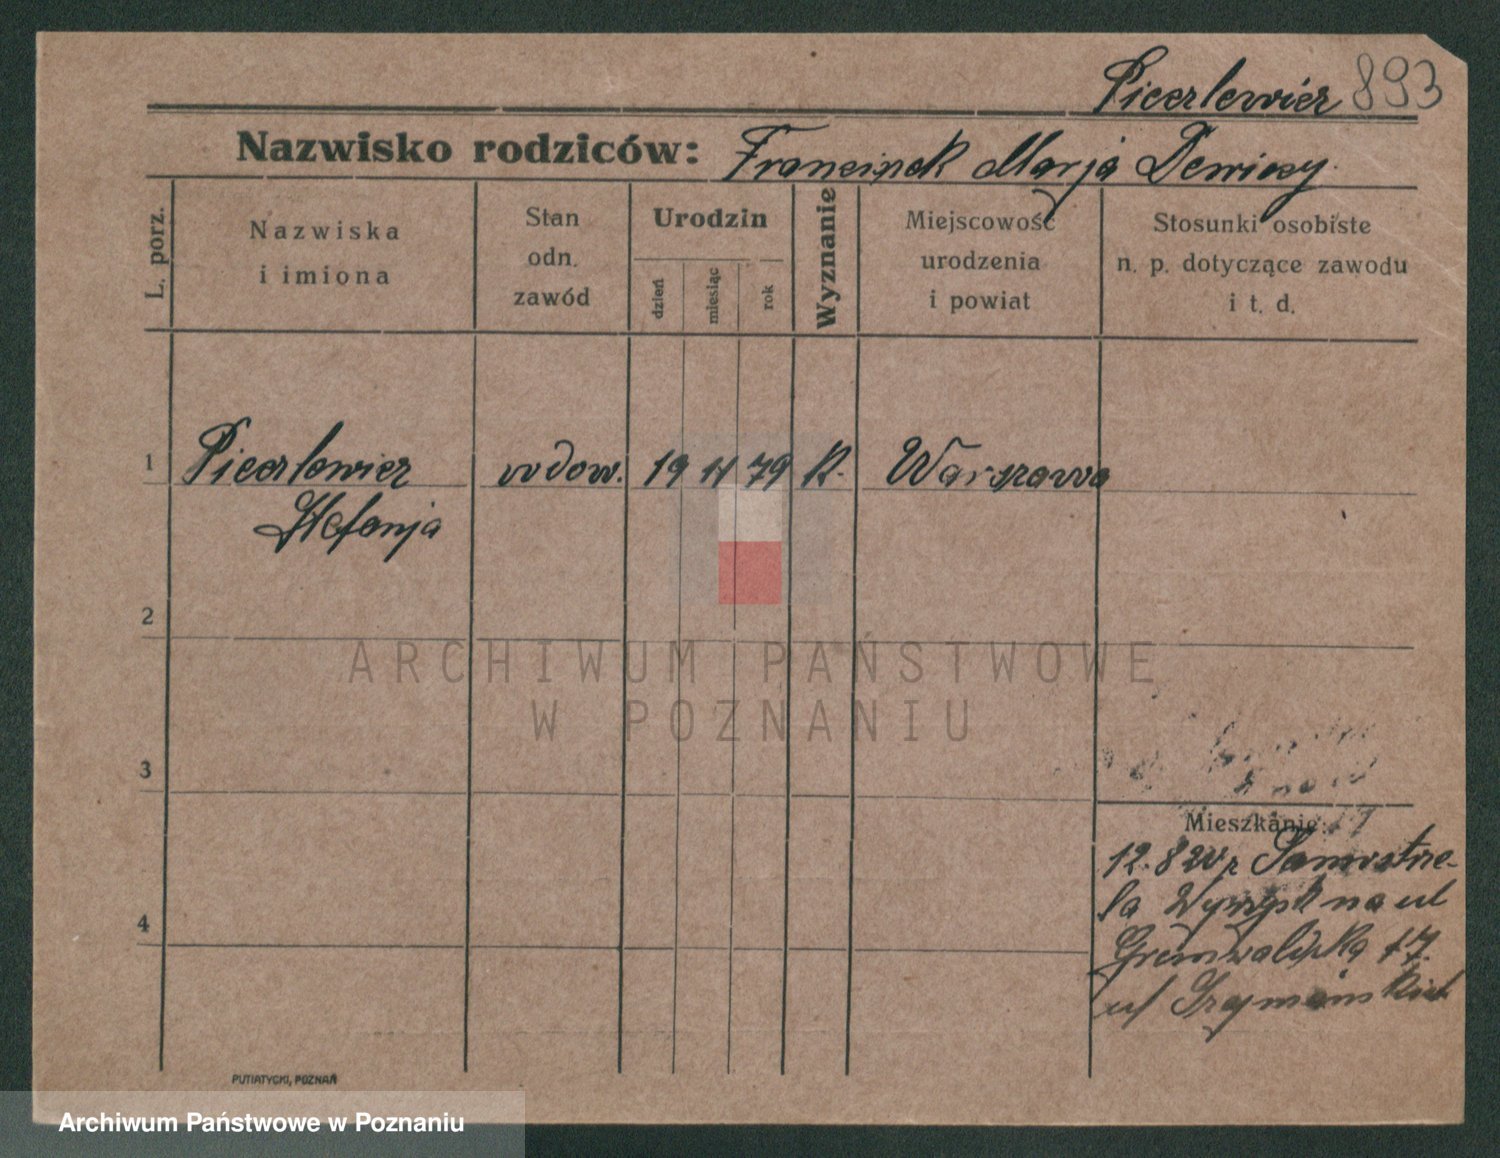 893
Nazwisko rodziców: Franciszek Marja
L. porz.
Nazwiska
i imiona
Stan
odn.
zawód
Urodzin
dzień
miesiąc
rok
Wyznanie
Miejscowość
urodzenia
i powiat
Stosunki osobiste
n. p. dotyczące zawodu
i t. d.
1
wdow. 19 11 79 K. Warszawa
Stefanja
2
3
4
Mieszkanie
12.8 20 z Samostrze-
la Wyrzysk na ul
Grunwaldzką 17.
ul
PUTIATYCKI, POZNAŃ
ARCHIWUM PAŃSTWOWE
W POZNANIU
Archiwum Państwowe w Poznaniu